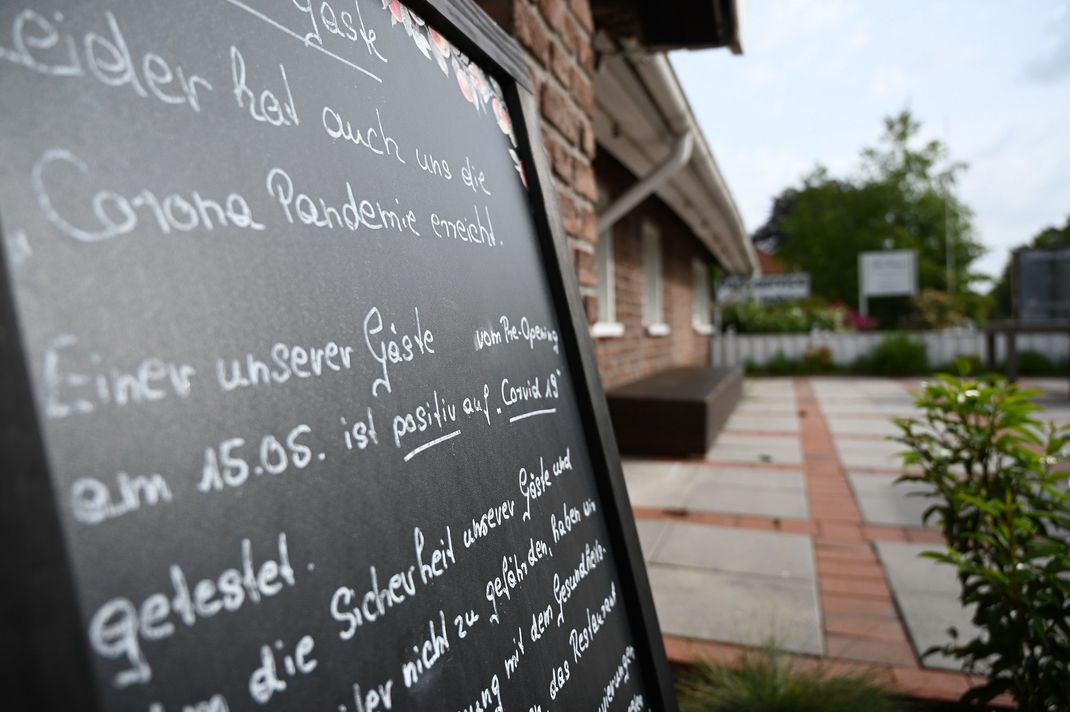 Gäste
Leider hat auch uns die
"Corona Pandemie erreicht.
Einer unserer Gäste vom Pre-Opening
am 15.05. ist positiv auf "Corvid 19"
getestet.
die Sicherheit unserer Gäste und
nicht zu gefährden, haben wir
mit dem Gesundheits-
das Restaurant